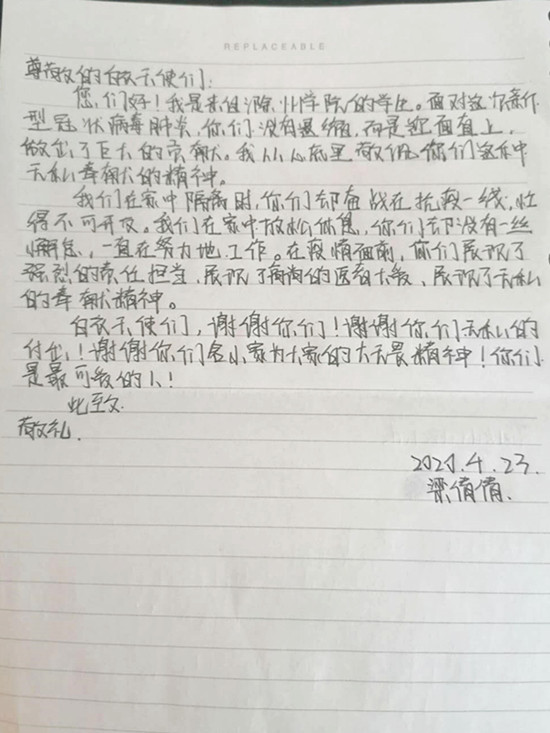 REPLACEABLE
尊敬的白衣天使们：
您们好！我是来自滁州学院的学生。面对这次新
型冠状病毒肺炎，你们没有退缩，而是迎面直上，
做出了巨大的贡献。我从心底里敬佩你们这种
无私奉献的精神。
我们在家中隔离时，你们却奋战在抗疫一线，忙
得不可开交。我们在家中放松休息，你们却没有一丝
懈怠，一直在努力地工作。在疫情面前，你们展现了
强烈的责任担当，展现了高尚的医者大爱，展现了无私
的奉献精神。
白衣天使们，谢谢你们！谢谢你们无私的
付出！谢谢你们舍小家为大家的大无畏精神！你们
是最可敬的人！
此至
敬礼.
2020.4.23.
梁倩倩.